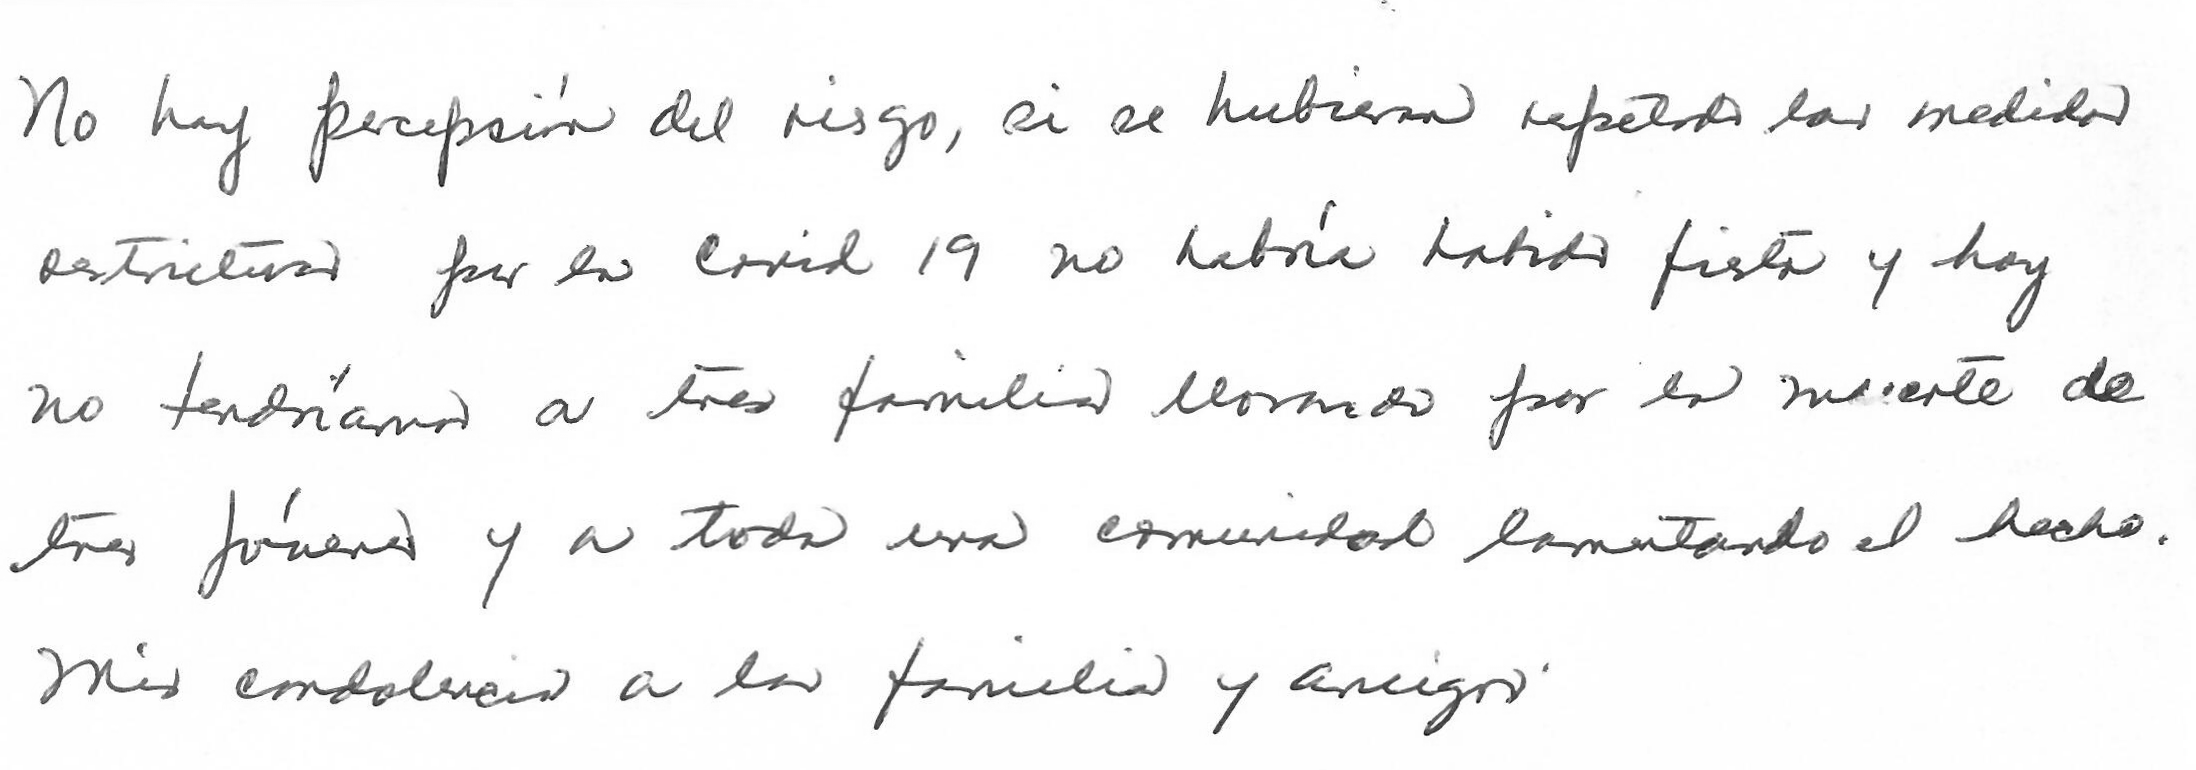 No hay percepsión del risgo, si se hubieran respetado las medidas
estrictas por la Covid 19 no habría habido fiesta y hoy
no tendríamos a tres familias llorando por la muerte de
tres jóvenes y a toda una comunidad lamentando el hecho.
Mis condolencias a las familias y amigos.